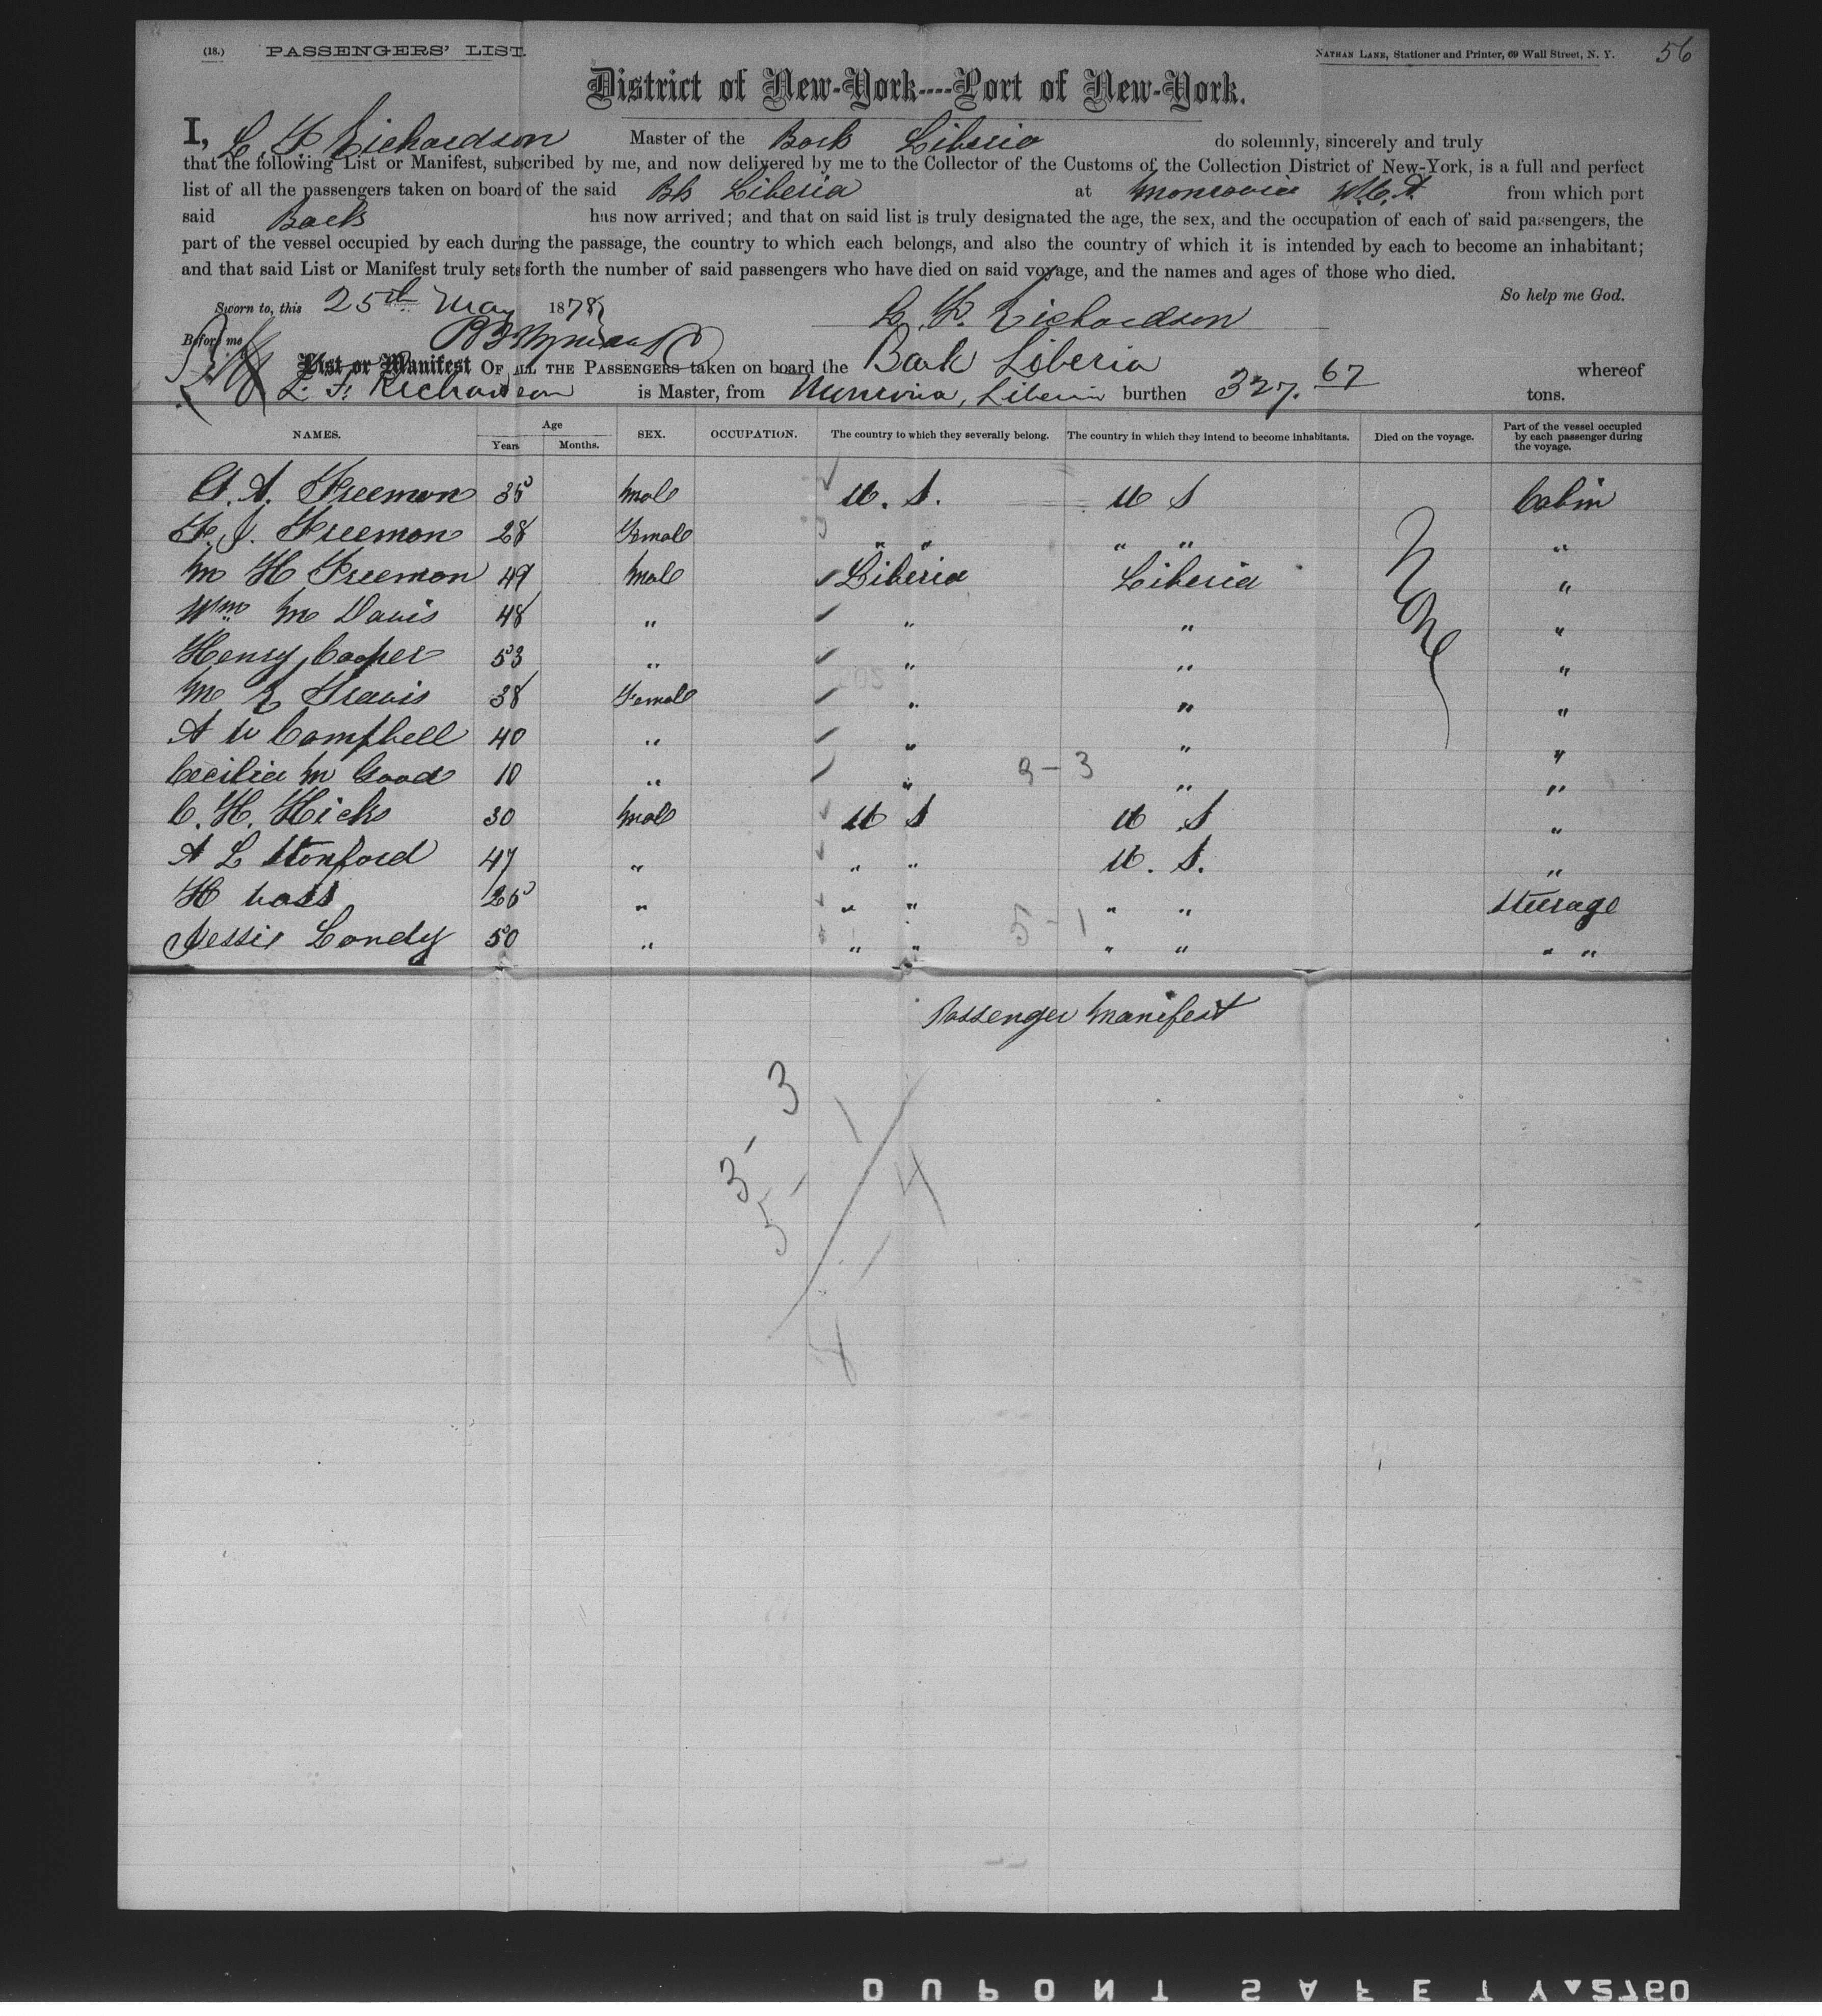 (18.) PASSENGERS' LIST. NATHAN LANE, Stationer and Printer, 69 Wall Street, N. Y. 56
District of New-York----Port of New-York.
I, L. F. Richardson Master of the Bark Liberia do solemnly, sincerely and truly
that the following List or Manifest, subscribed by me, and now delivered by me to the Collector of the Customs of the Collection District of New-York, is a full and perfect
list of all the passengers taken on board of the said Bk Liberia at Monrovia W.C.A from which port
said Bark has now arrived; and that on said list is truly designated the age, the sex, and the occupation of each of said passengers, the
part of the vessel occupied by each during the passage, the country to which each belongs, and also the country of which it is intended by each to become an inhabitant;
and that said List or Manifest truly sets forth the number of said passengers who have died on said voyage, and the names and ages of those who died.
So help me God.
Sworn to, this 25th May 1878 L. F. Richardson
Before me
List or Manifest OF ALL THE PASSENGERS taken on board the Bark Liberia whereof
L. F. Richardson is Master, from Monrovia, Liberia burthen 327. 67 tons.
NAMES. Age Years Months. SEX. OCCUPATION. The country to which they severally belong. The country in which they intend to become inhabitants. Died on the voyage. Part of the vessel occupied by each passenger during the voyage.
A. Freeman 35 Male U. S. U S Cabin
F. J. Freeman 28 Female " " " " "
M H Freeman 49 Male Liberia Liberia None "
Wm M Davis 48 " " " "
Henry Cooper 53 " " " "
M E Travis 38 Female " " "
A W Campbell 40 " " " "
Cecilia M Good 10 " " 3 - 3 " "
C. H. Hicks 30 Male U S U S "
A L Stanford 47 " " " U. S. "
H 25 " " " " " Steerage
Jessie Landy 50 " " " 5 - 1 " " " "
Passenger Manifest
3 - 3
5 - 1
4
8
DUPONT SAFETY 2760